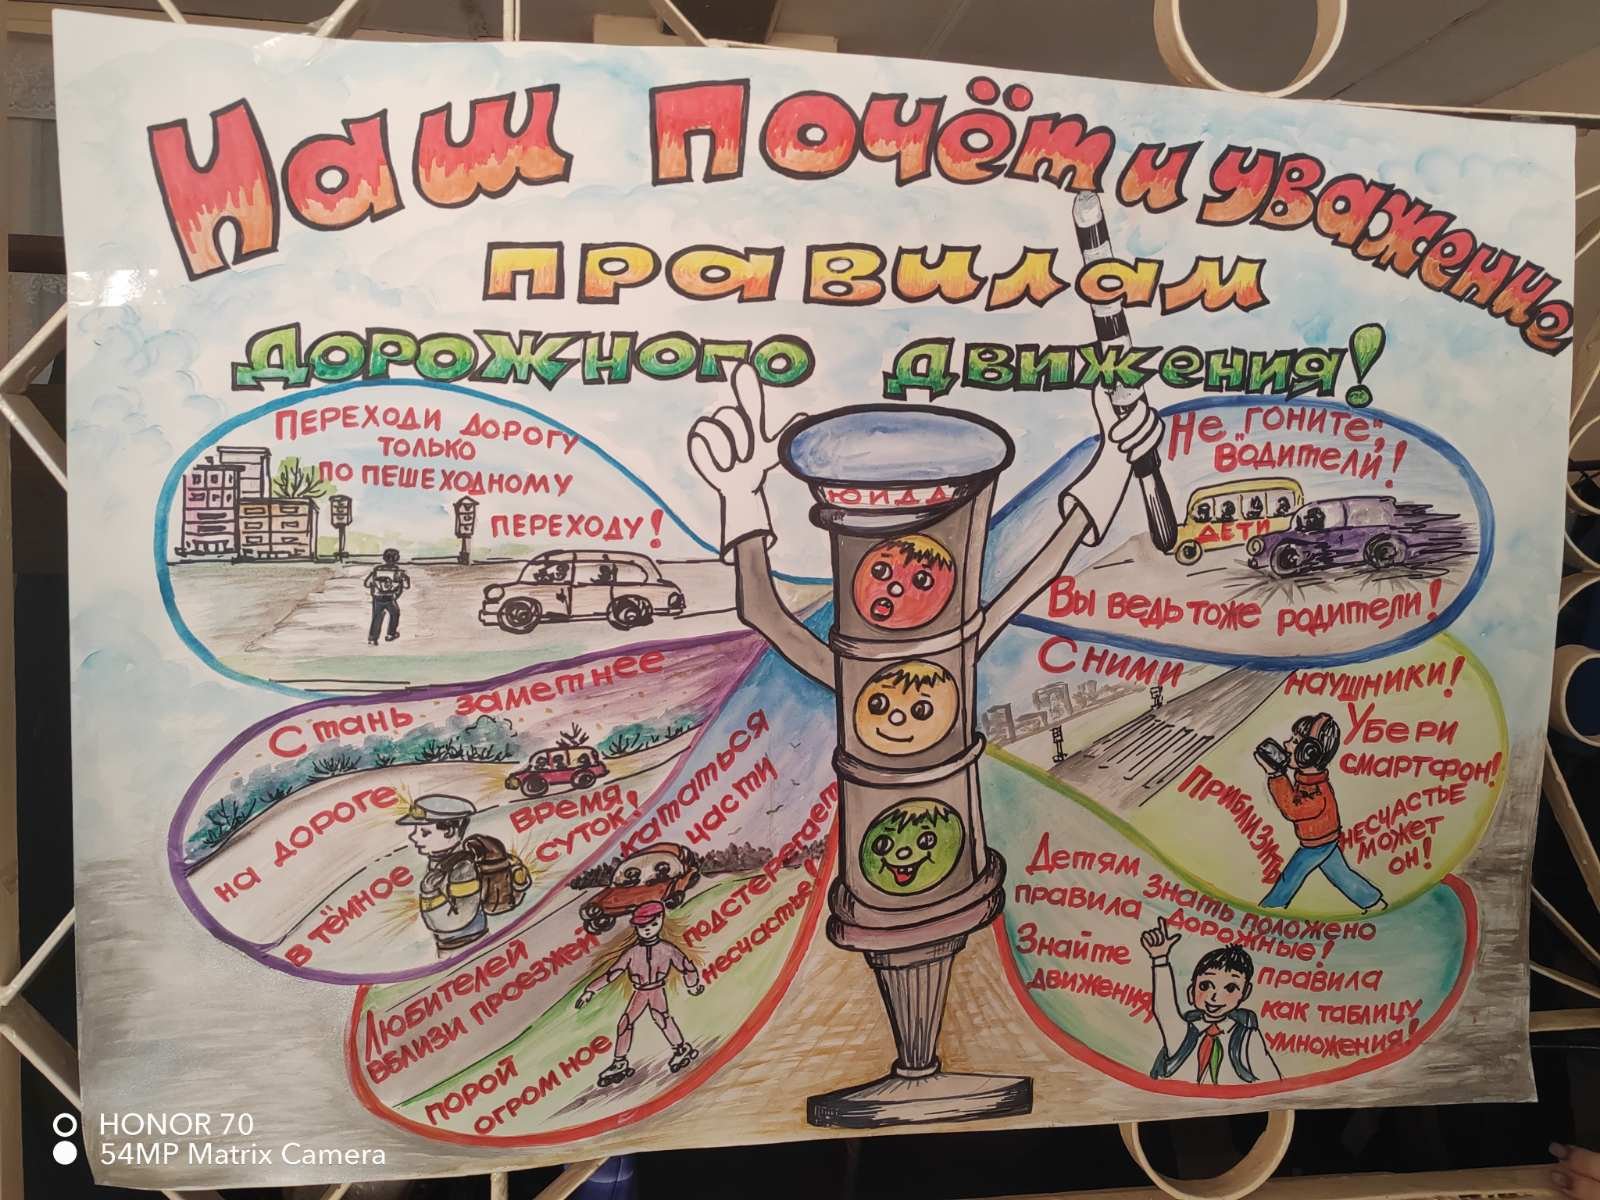 Наш почёт и уважение
правилам
дорожного движения!
Переходи дорогу
только
по пешеходному
переходу!
Не "гоните",
водители!
ДЕТИ
Вы ведь тоже родители!
ЮИДД
Стань заметнее
на дороге
в тёмное
время
суток!
Сними
наушники!
Убери
смартфон!
Приблизжть
несчастье
может
он!
Любителей
кататься
вблизи проезжей
части
порой
подстерегает
огромное
несчастье!
Детям знать положено
правила дорожные!
Знайте
правила
движения,
как таблицу
умножения!
HONOR 70
54MP Matrix Camera